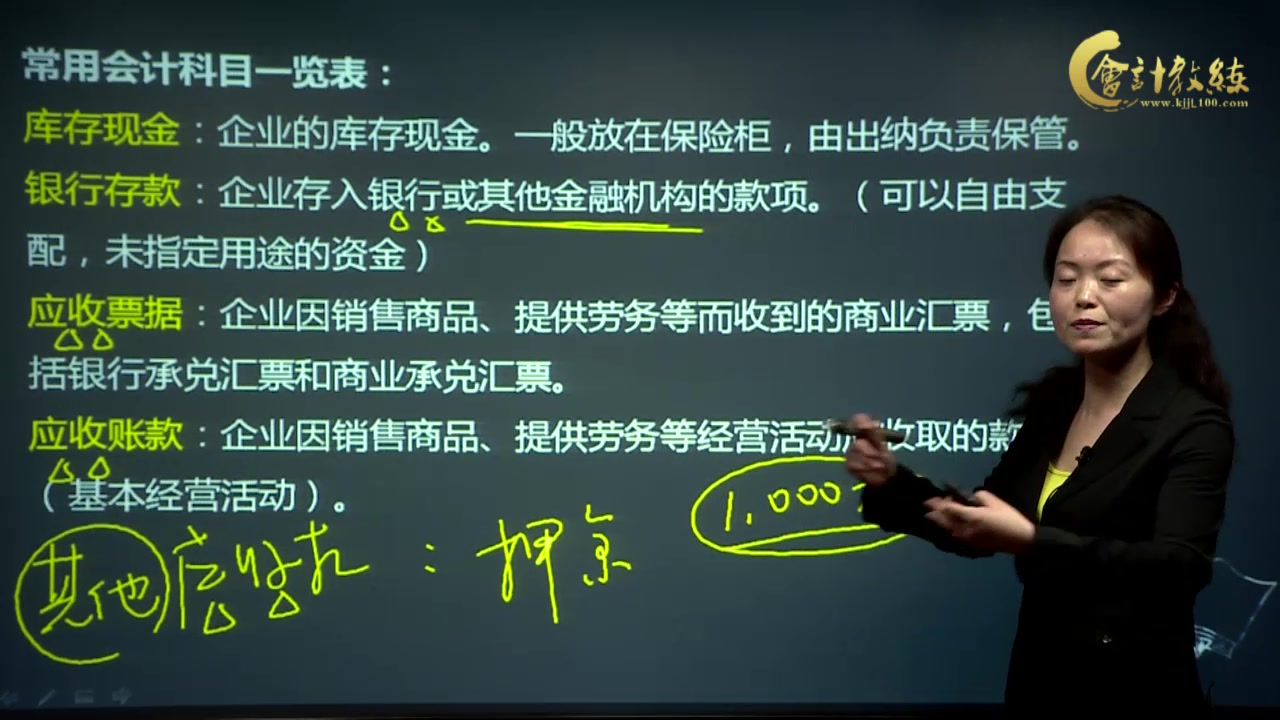 常用会计科目一览表：
會計教練
www.kjjl100.com
库存现金：企业的库存现金。一般放在保险柜，由出纳负责保管。
银行存款：企业存入银行或其他金融机构的款项。（可以自由支
配，未指定用途的资金）
应收票据：企业因销售商品、提供劳务等而收到的商业汇票，包
括银行承兑汇票和商业承兑汇票。
应收账款：企业因销售商品、提供劳务等经营活动应收取的款
（基本经营活动）。
1,000
其他应收款：押金